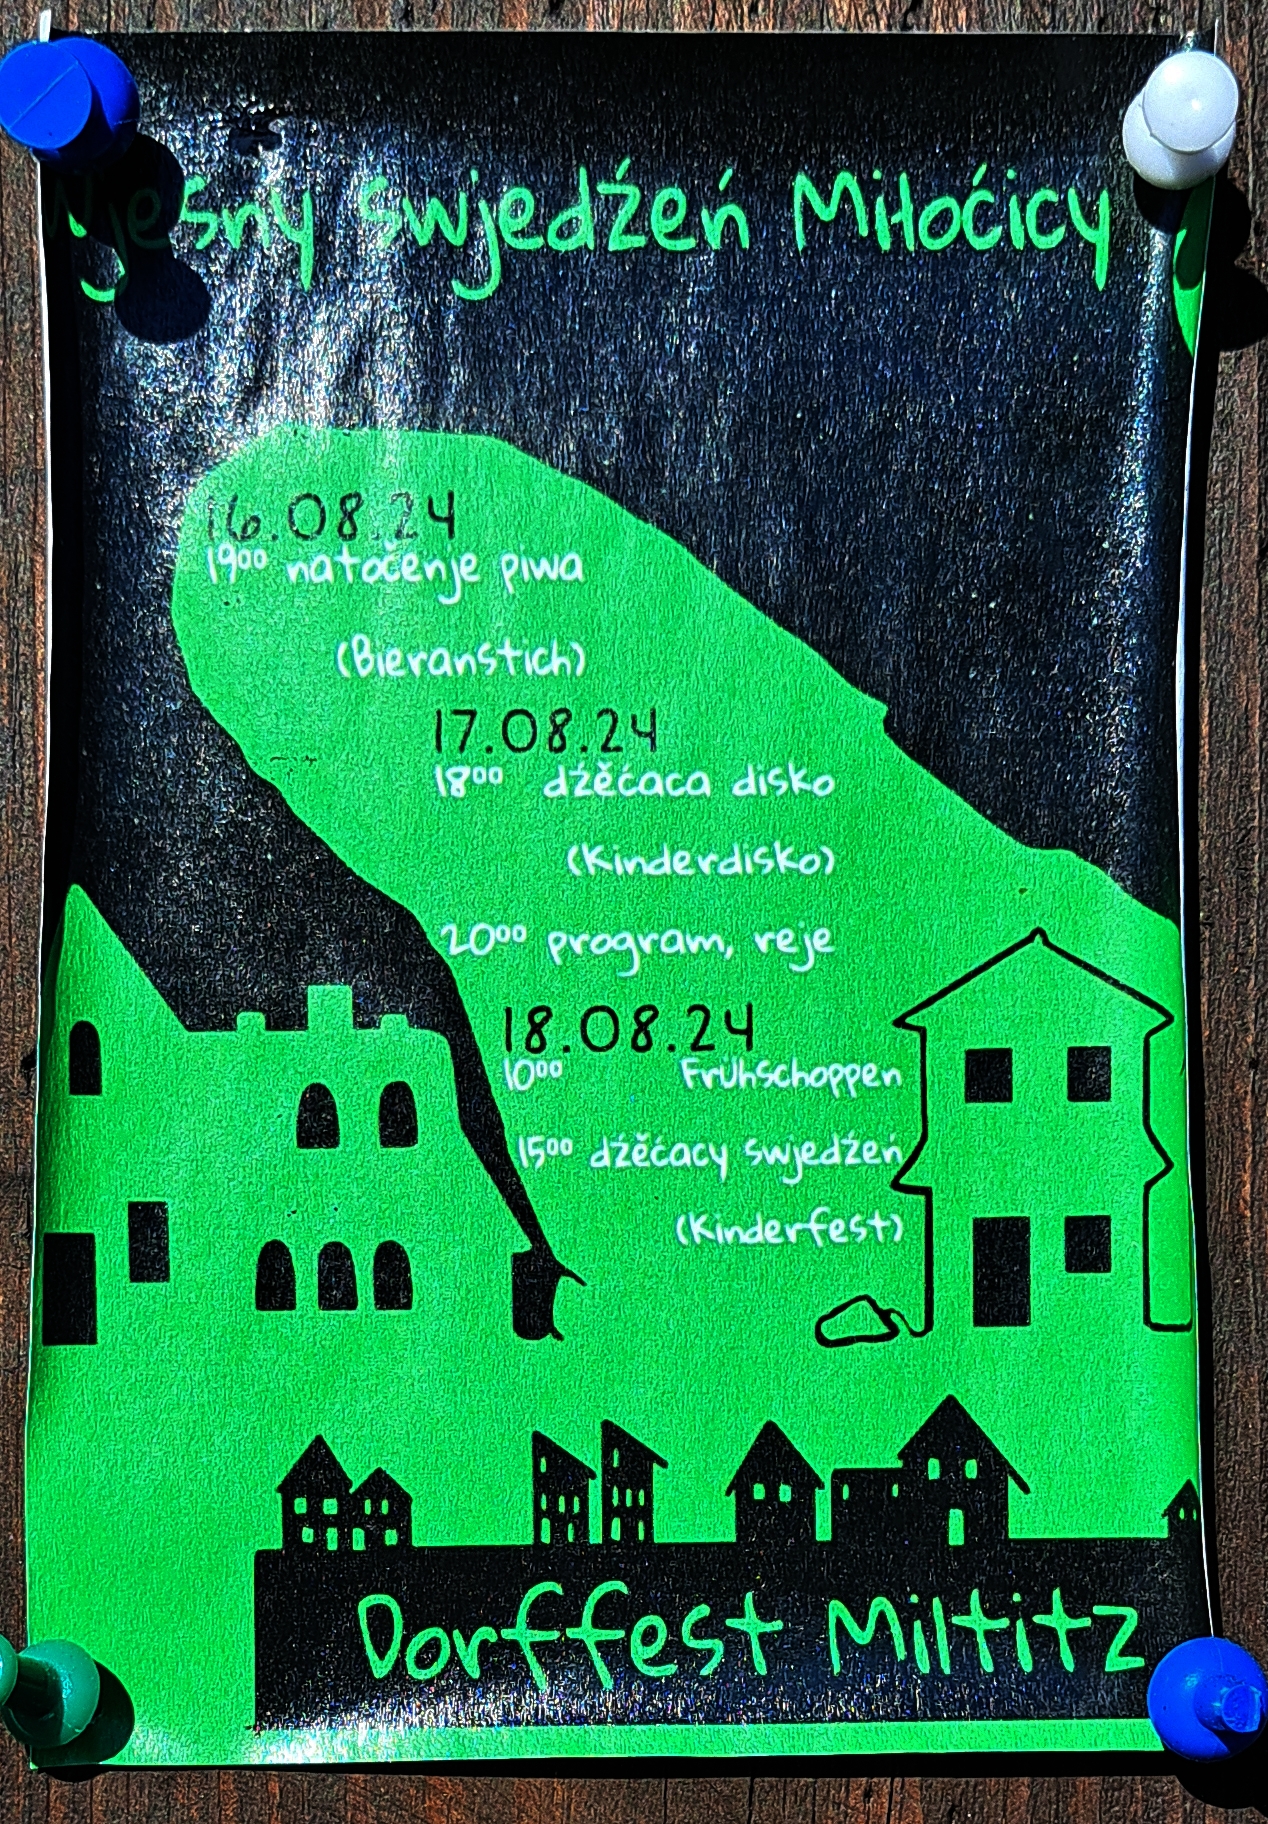 Wjesny swjedźeń Miłoćicy
16.08.24
19⁰⁰ natočenje piwa
(Bieranstich)
17.08.24
18⁰⁰ dźěćaca disko
(Kinderdisko)
20⁰⁰ program, reje
18.08.24
10⁰⁰ Frühschoppen
15⁰⁰ dźěćacy swjedźeń
(Kinderfest)
Dorffest Miltitz